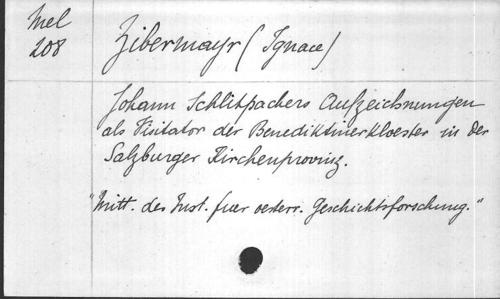 Mel
208
Zibermayr (Ignace)
Johann Schlitpachers Aufzeichnungen
als Visitator der Benediktinerkloester in der
Salzburger Kirchenprovinz.
"Mitt. des Inst. fuer oesterr. Geschichtsforschung."